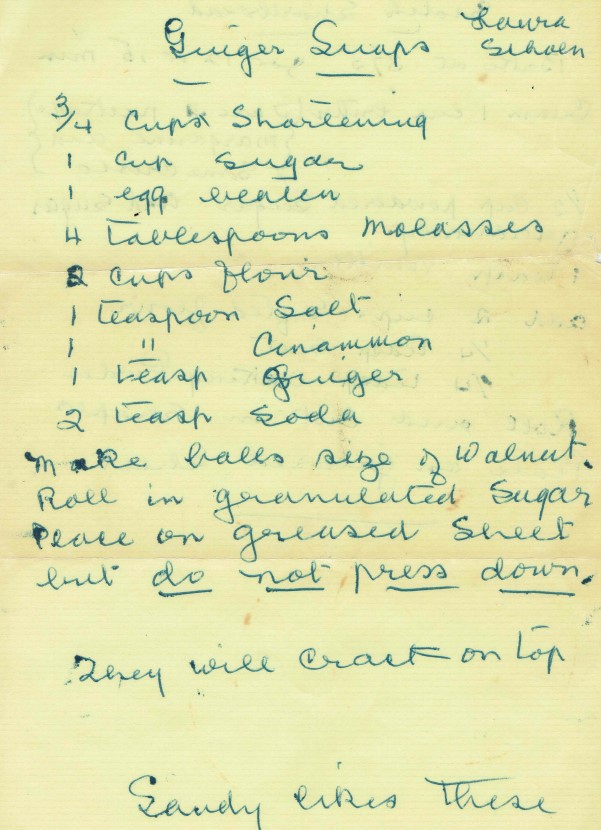 Ginger Snaps
Laura
Schoen
3/4 Cups Shortening
1 Cup Sugar
1 egg beaten
4 Tablespoons Molasses
2 Cups flour
1 teaspoon Salt
1 " Cinammon
1 teasp Ginger
2 teasp Soda
Make balls size of Walnut.
Roll in granulated Sugar
Place on greased Sheet
but do not press down.
They will Crack on top
Sandy likes these